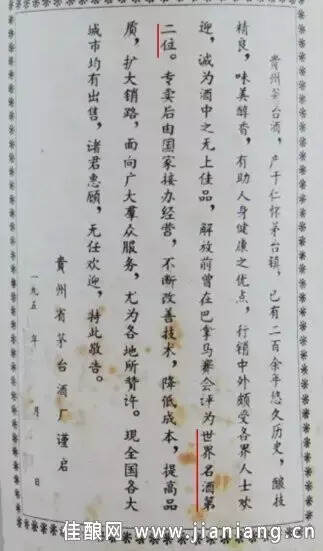 貴州茅台酒，产于仁怀茅台镇，已有二百余年悠久历史，酿技
精良，味美醇香，有助人身健康之优点，行销中外颇受各界人士欢
迎，诚为酒中之无上佳品，解放前曾在巴拿马赛会评为世界名酒第
二位。专卖后由国家接办经营，不断改善技术，降低成本，提高品
质，扩大销路，面向广大羣众服务，尤为各地所赞许。现全国各大
城市均有出售，诸君惠顾，无任欢迎，特此敬告。
貴州省茅台酒厂谨启
一九五 年 月 日
佳酿网 www.jianiang.cn